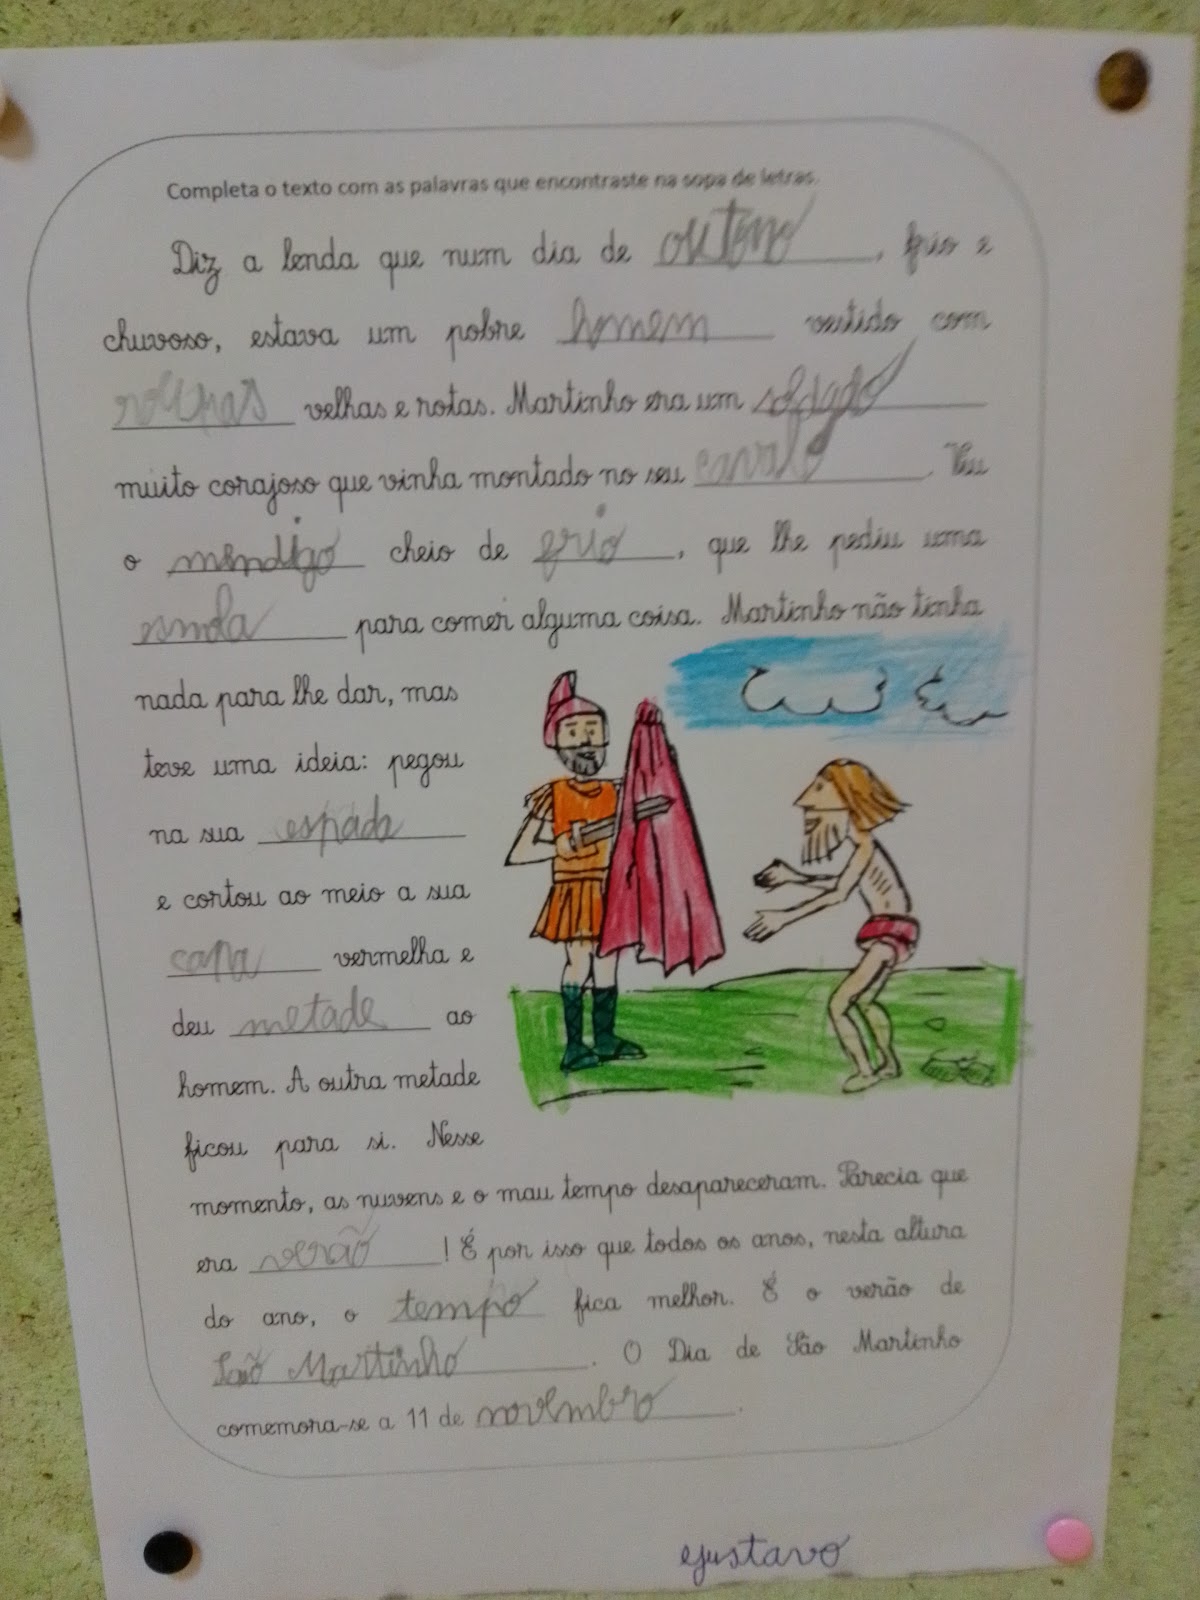 Completa o texto com as palavras que encontraste na sopa de letras.
Diz a lenda que num dia de outono, frio e
chuvoso, estava um pobre homem vestido com
roupas velhas e rotas. Martinho era um soldado
muito corajoso que vinha montado no seu cavalo. Viu
o mendigo cheio de frio, que lhe pediu uma
esmola para comer alguma coisa. Martinho não tinha
nada para lhe dar, mas
teve uma ideia: pegou
na sua espada
e cortou ao meio a sua
capa vermelha e
deu metade ao
homem. A outra metade
ficou para si. Nesse
momento, as nuvens e o mau tempo desapareceram. Parecia que
era verão! É por isso que todos os anos, nesta altura
do ano, o tempo fica melhor. É o verão de
São Martinho. O Dia de São Martinho
comemora-se a 11 de novembro.
Gustavo